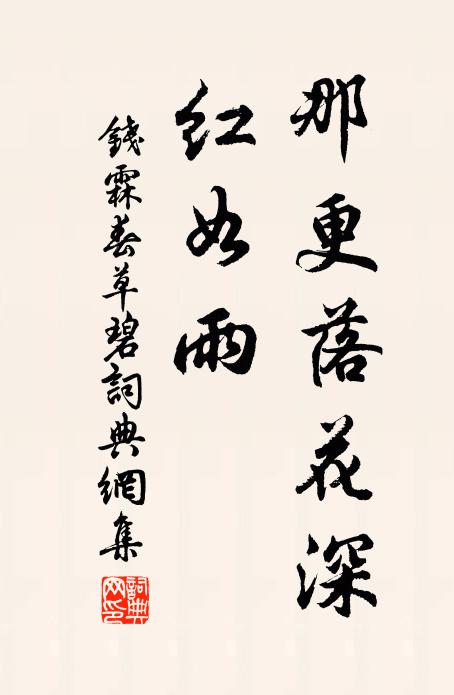 那更落花深
紅如雨
錢霖春草碧詞典網集
詞典網印